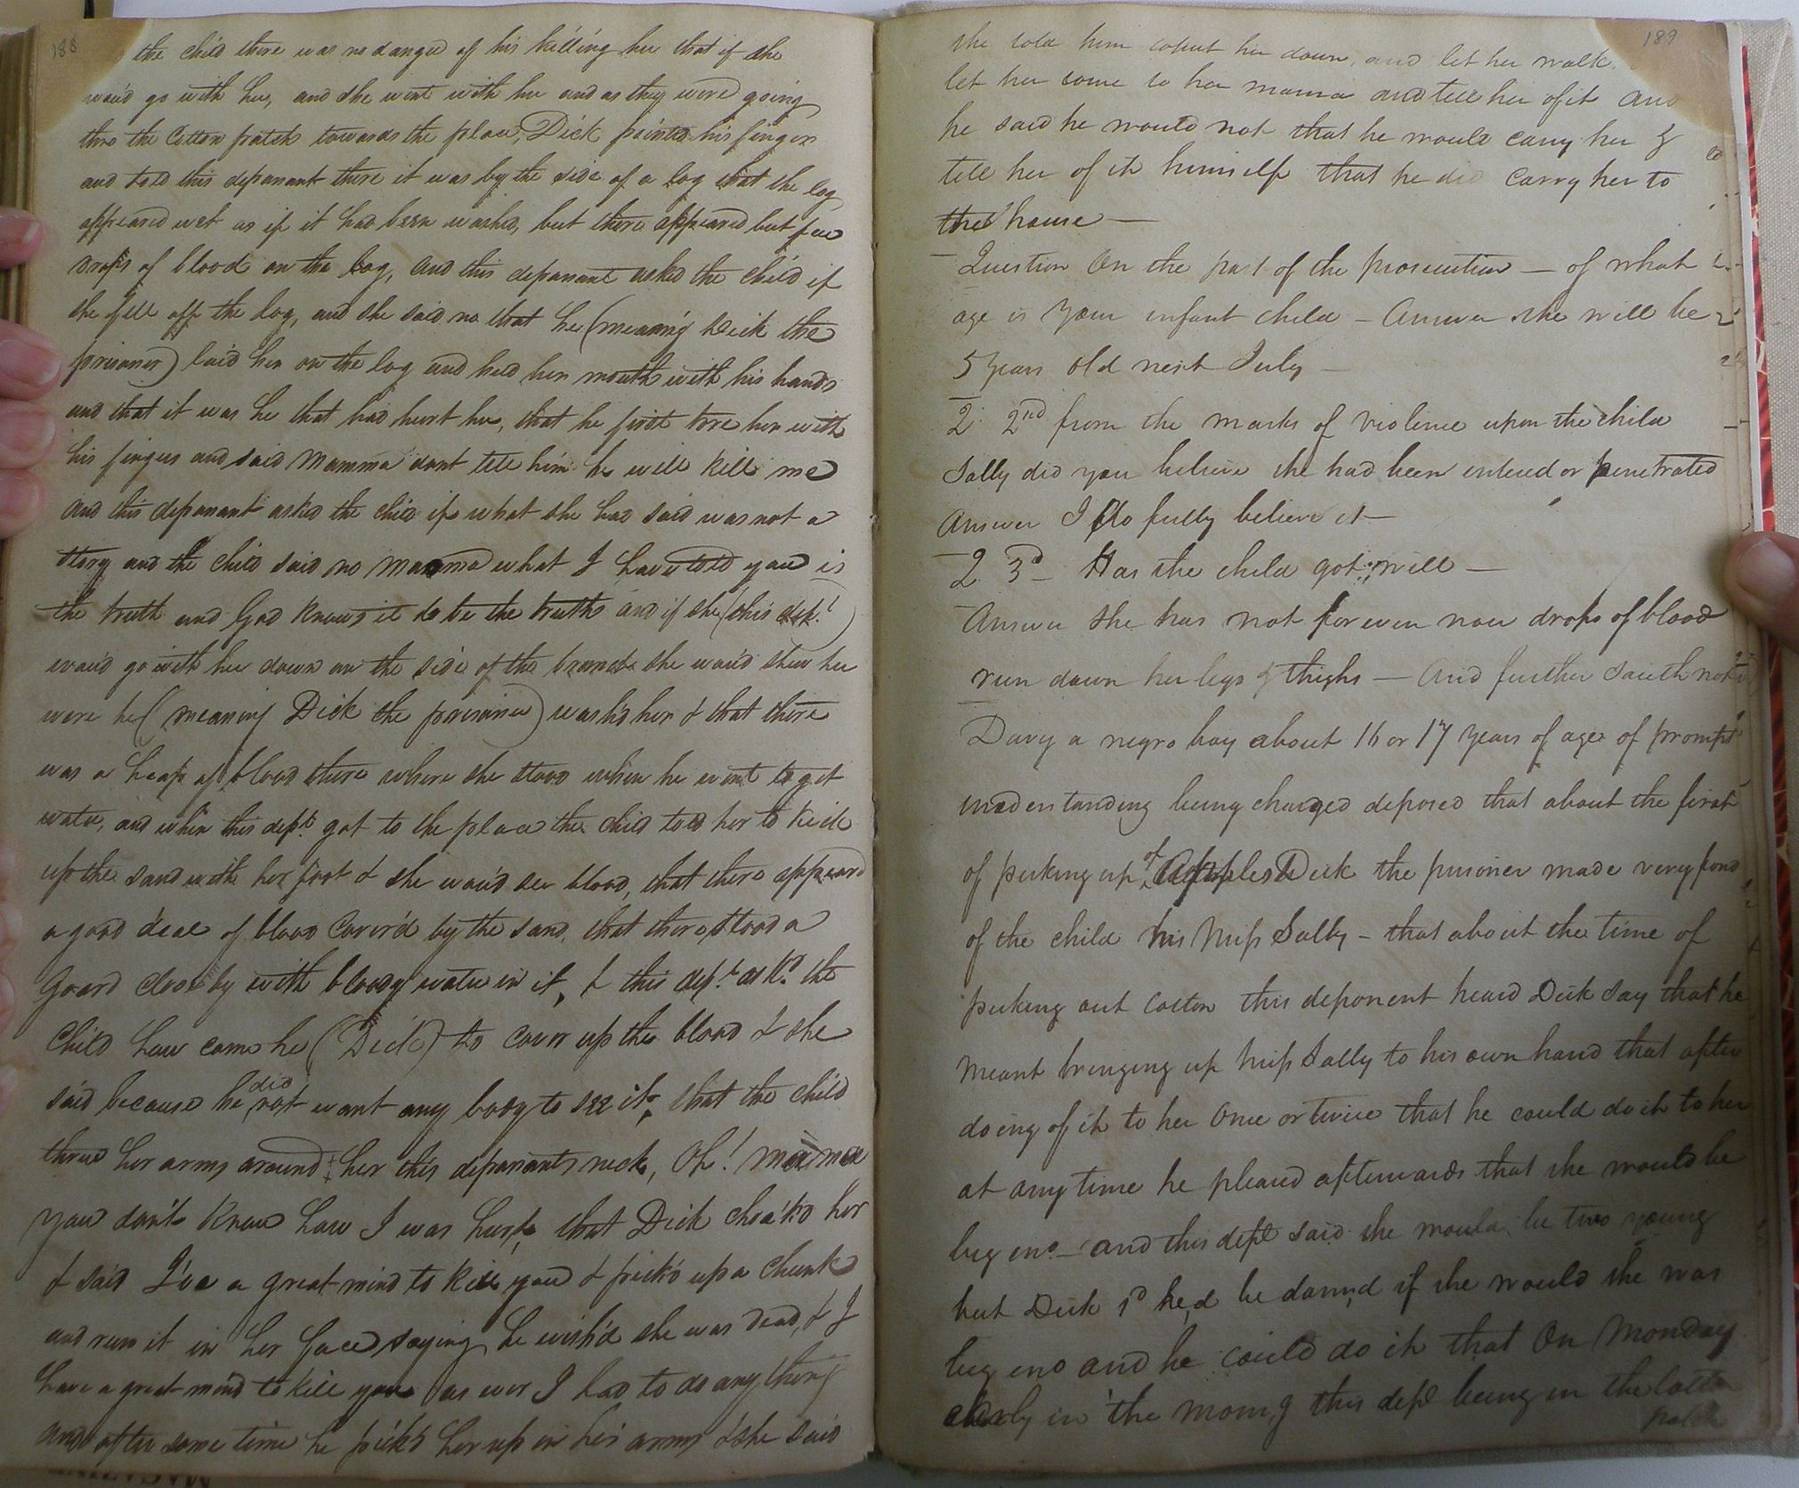 188
the child there was no danger of his killing her that if she
wou'd go with her, and she went with her and as they were going
thro the Cotton patch towards the place, Dick pointed his finger
and told this deponant there it was by the side of a log that the log
appeared wet as if it had been washed, but there appeared but few
drops of blood on the log, and this deponant asked the child if
she fell off the log, and she said no that he (meaning Dick the
prisoner) laid her on the log and held her mouth with his hands
and that it was he that had hurt her, that he first tore her with
his fingers and said Mamma dont tell him he will kill me
and this deponant asked the child if what she had said was not a
story and the child said no Mamma what I have told you is
the truth and God knows it to be the truth and if she (this dept.)
wou'd go with her down on the side of the branch she wou'd shew her
were he (meaning Dick the prisoner) wash'd her & that there
was a heap of blood there where she stood when he went to get
water, and when this dept. got to the place the child told her to kick
up the sand with her foot & she wou'd see blood, that there appeard
a good deal of blood cover'd by the sand, that there stood a
Goard close by with bloody water in it, & this dept. askd. the
Child how came he (Dick) to cover up the blood & she
said because he did not want any body to see it, that the child
threw her arms around her this deponants neck, Oh! mamma
you don't know how I was hurt, that Dick choak'd her
& said I've a great mind to kill you & pick'd up a chunk
and run it in her face saying he wish'd she was dead, & I
have a great mind to kill you as ever I had to do any thing
and after some time he pick'd her up in his arms & she said
189
she told him to put her down, and let her walk.
let her come to her mama and tell her of it and
he said he would not that he would carry her &
tell her of it himself that he did carry her to
the house —
Question On the part of the prosecution — of what
age is your infant child — Answer she will be
5 years old next July —
Q. 2nd from the marks of violence upon the child
Sally did you believe she had been entered or penetrated
Answer I do fully believe it —
Q 3d — Has the child got well —
Answer she has not for even now drops of blood
run down her legs & thighs — And further saith not
Davy a negro boy about 16 or 17 years of age of prompt
understanding being charged deposed that about the first
of picking up of Apples Dick the prisoner made very fond
of the child his Miss Sally — that about the time of
picking out cotton this deponent heard Dick say that he
meant bringing up Miss Sally to his own hand that after
doing of it to her Once or twice that he could do it to her
at any time he pleased afterwards that she would be
big eno — and this dept said she would be two young
but Dick sd he,d be damn,d if she would she was
big eno and he could do it that On Monday
early in the morng this dept being in the Cotton
patch